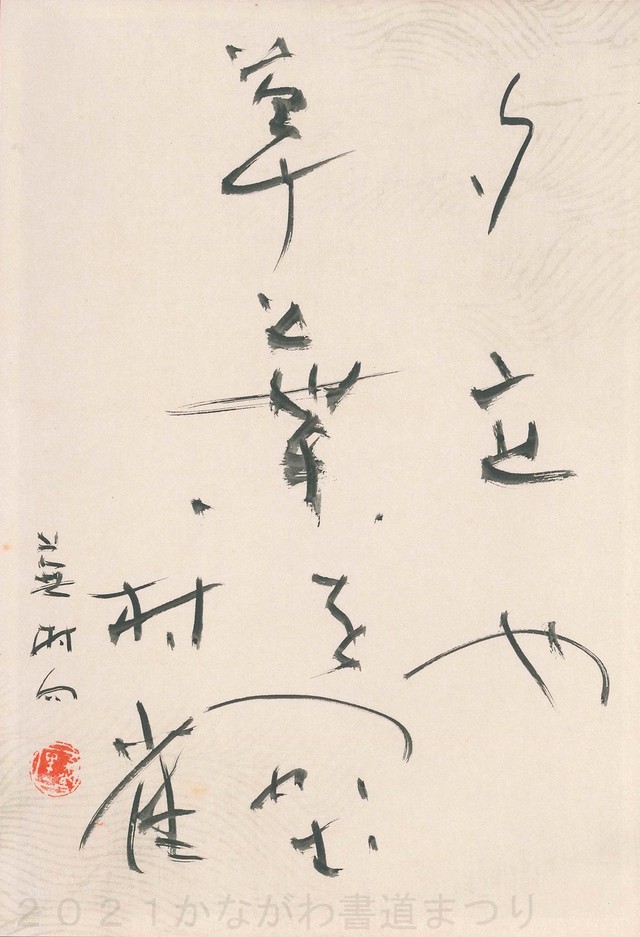 夕立や
草葉をつかむ
村雀
蕪村句
２０２１かながわ書道まつり